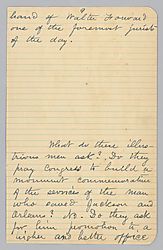 board of Walter Forward
one of the foremost jurists
of the day.
What do these illus-
trious men ask? Do they
pray Congress to build a
monument commemorative
of the services of the man
who saved Jackson and
Orleans? No. Do they ask
for him promotion to a
higher and better office